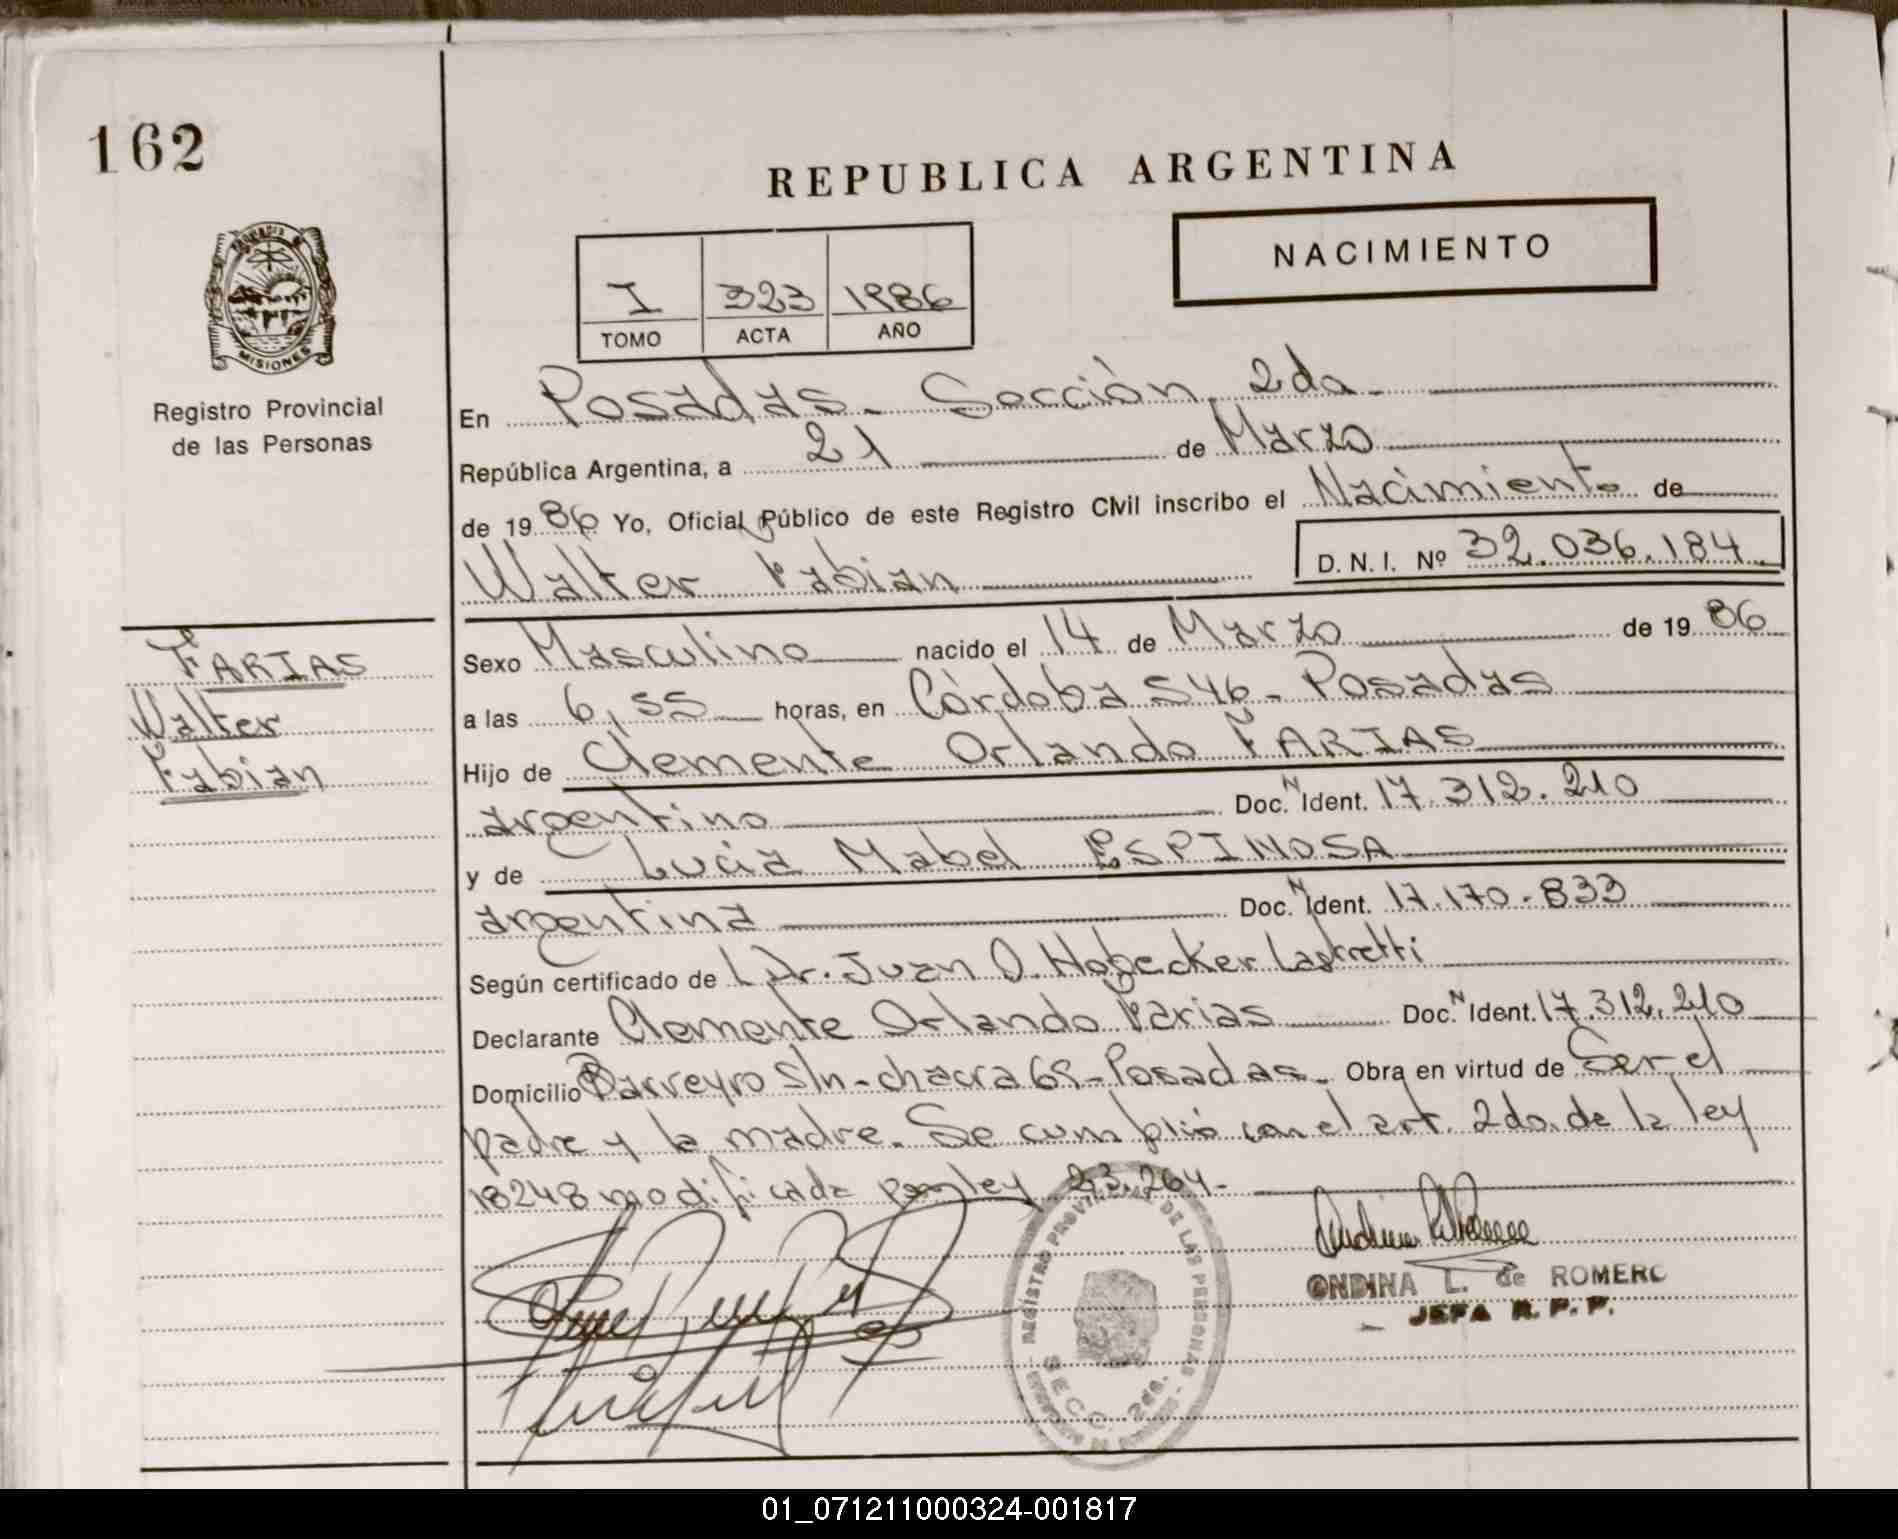 162
REPUBLICA ARGENTINA
NACIMIENTO
I 323 1986
TOMO ACTA AÑO
MISIONES
Registro Provincial
de las Personas
En Posadas - Sección 2da.
República Argentina, a 21 de Marzo
de 1986 Yo, Oficial Público de este Registro Civil inscribo el Nacimiento de
Walter Fabian D.N.I. Nº 32.036.184
FARIAS
Walter
Fabian
Sexo Masculino nacido el 14 de Marzo de 1986
a las 6,55 horas, en Córdoba 546 - Posadas
Hijo de Clemente Orlando FARIAS
argentino Doc. N Ident. 17.312.210
y de Lucia Mabel ESPINOSA
argentina Doc. N Ident. 17.170.833
Según certificado de Dr. Juan O. Hobecker
Declarante Clemente Orlando Farias Doc. N Ident. 17.312.210
Domicilio Barreyro s/n - chacra 69 - Posadas. Obra en virtud de Ser el
padre y la madre. Se cumplió con el art. 2do. de la ley
18248 modificada por ley 23.264.-
REGISTRO PROVINCIAL DE LAS PERSONAS
SECC. 2da.
ONDINA L. de ROMERO
JEFA R.P.P.
01_071211000324-001817